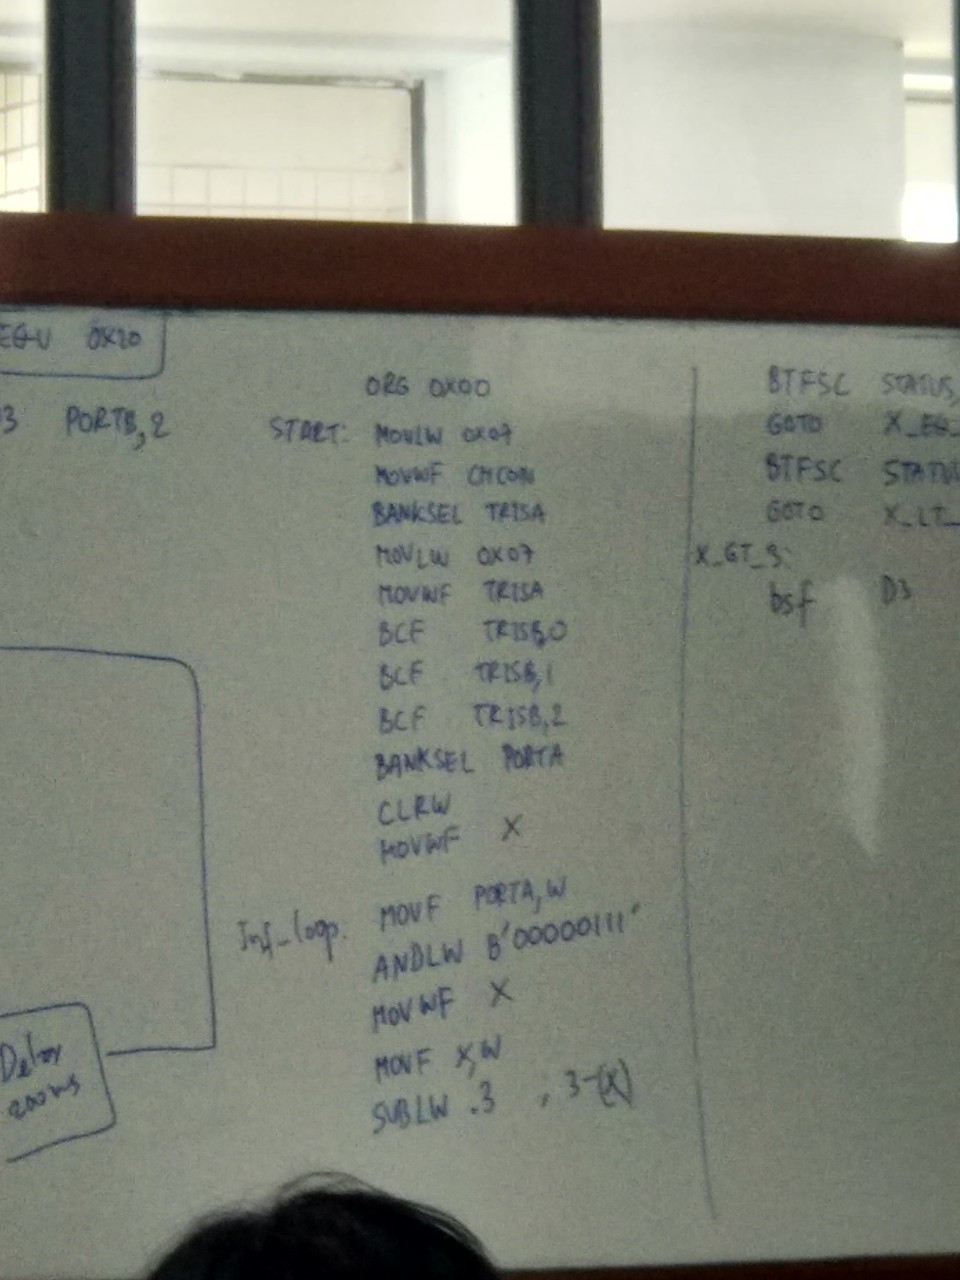 EQU 0X20
3 PORTB,2
Delay
200ms
ORG 0X00
START: MOVLW 0X07
MOVWF CMCON
BANKSEL TRISA
MOVLW 0X07
MOVWF TRISA
BCF TRISB,0
BCF TRISB,1
BCF TRISB,2
BANKSEL PORTA
CLRW
MOVWF X
Inf_loop: MOVF PORTA,W
ANDLW B'00000111'
MOVWF X
MOVF X,W
SUBLW .3 ; 3-(X)
BTFSC STATUS,
GOTO X_EQ_
BTFSC STATU
GOTO X_LT_
X_GT_3:
bsf D3